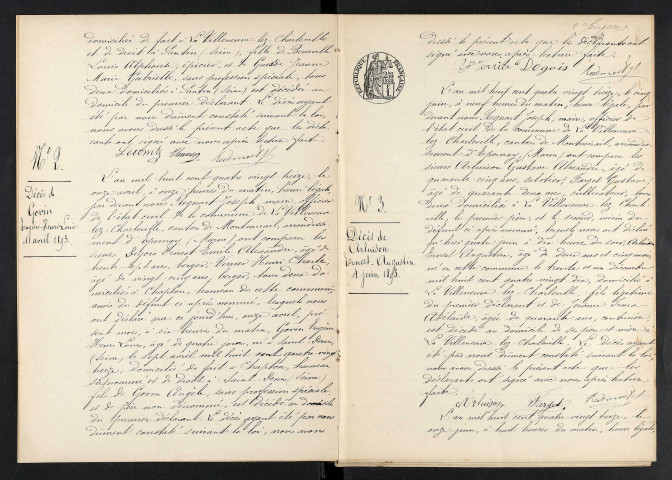 domiciliée de fait à La Villeneuve lez Charleville
et de droit à Pantin (Seine), fille de
Louis Alphonse, épicier, et de Jeanne
Marie Gabrielle, sans profession spéciale, tous
deux domiciliés à Pantin (Seine) est décédée au
domicile du premier déclarant. Le décès ayant
été par nous dûment constaté suivant la loi,
nous avons dressé le présent acte que les décla-
rants ont signé avec nous après lecture faite.
N° 2.
Décès de
Govin
Eugène Henri Louis
11 avril 1893.
L'an mil huit cent quatre vingt treize, le
onze avril, à onze heures du matin, heure légale,
par devant nous Regnart Joseph, maire, officier
de l'état civil de la commune de La Villeneuve
lez Charleville, canton de Montmirail, arrondisse-
ment d'Epernay (Marne) ont comparu les
sieurs Dégois Ernest Emile Alexandre, âgé de
trente sept ans, berger, Henri Charles,
âgé de vingt cinq ans, berger, tous deux do-
miciliés à Chapton, hameau de cette commune,
amis du défunt ci après nommé, lesquels nous
ont déclaré que ce jourd'hui, onze avril, pré-
sent mois, à six heures du matin, Govin Eugène
Henri Louis, âgé de quatre jours, né à Saint Denis
(Seine), le sept avril mil huit cent quatre vingt
treize, domicilié de fait à Chapton, hameau
susnommé et de droit à Saint Denis (Seine)
fils de Govin Angèle, sans profession spéciale
et de père non dénommé, est décédé au domicile
du premier déclarant. Le décès ayant été par nous
dûment constaté suivant la loi, nous avons
dressé le présent acte que les déclarants ont
signé avec nous, après lecture faite.
Dégois
RÉPUBLIQUE FRANÇAISE
N° 3.
Décès de
Ernest Augustin
4 juin 1893.
L'an mil huit cent quatre vingt treize, le cinq
juin, à neuf heures du matin, heure légale, par
devant nous Regnart Joseph, maire, officier de
l'état civil de la commune de La Villeneuve
lez Charleville, canton de Montmirail, arrondis-
sement d'Epernay (Marne) ont comparu les
sieurs Gustave Alexandre, âgé de
quarante cinq ans, Gustave,
âgé de quarante deux ans, cultivateur, tous
deux domiciliés à La Villeneuve lez Charle-
ville, le premier père, et le second voisin du
défunt ci après nommé, lesquels nous ont décla-
ré que hier quatre juin à dix heures du soir,
Ernest Augustin, âgé de deux ans et cinq mois,
né en cette commune le trente et un décembre
mil huit cent quatre vingt dix, domicilié à
La Villeneuve lez Charleville, fils légitime
du premier déclarant et de
Adélaïde, âgée de quarante ans, couturière,
est décédé au domicile de ses père et mère à
La Villeneuve lez Charleville. Le décès ayant
été par nous dûment constaté suivant la loi,
nous avons dressé le présent acte que les
déclarants ont signé avec nous, après lecture
faite.
L'an mil huit cent quatre vingt treize, le
onze juin, à huit heures du matin, heure légale,